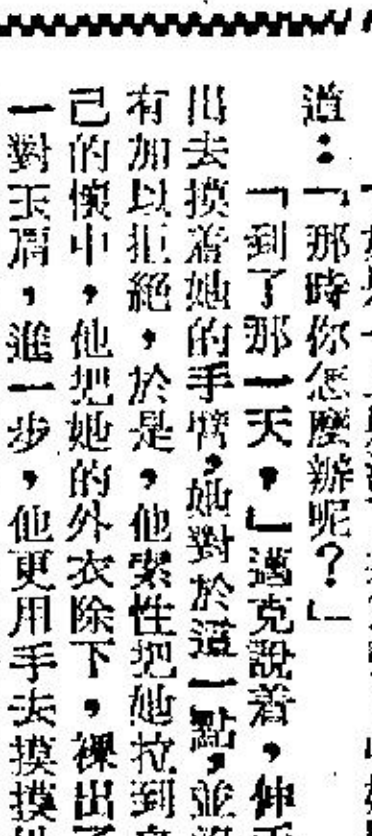 道：「那時你怎麼辦呢？」
「到了那一天，」邁克說着，伸手
出去摸着她的手臂，她對於這一點，並
有加以拒絕，於是，他索性把她拉到
己的懷中，他把她的外衣除下，裸出了
一對玉肩，進一步，他更用手去摸摸